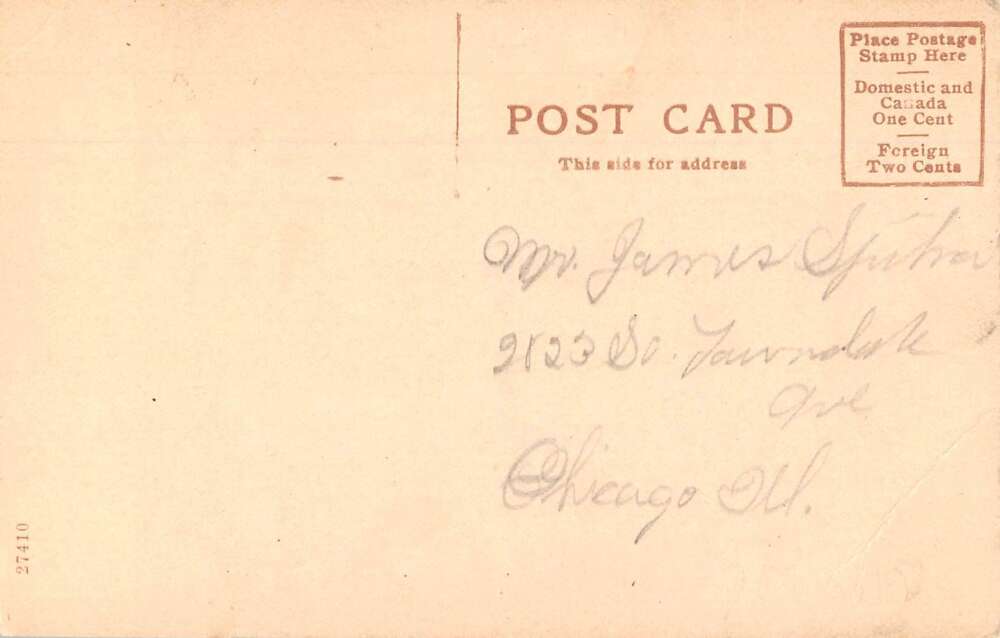 POST CARD
This side for address
Place Postage
Stamp Here
Domestic and
Canada
One Cent
Foreign
Two Cents
Mr. James
2123 So. Lawndale
Ave
Chicago Ill.
27410